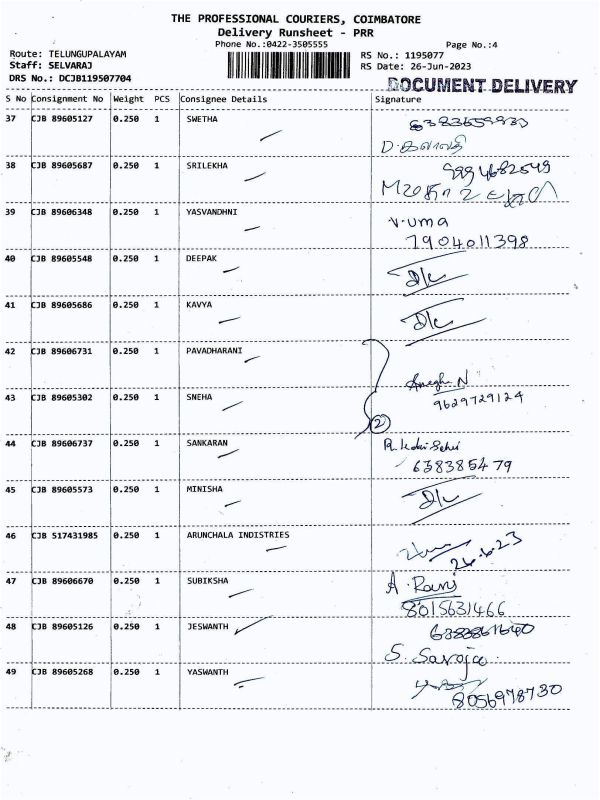 THE PROFESSIONAL COURIERS, COIMBATORE
Delivery Runsheet - PRR
Phone No.:0422-3505555
Page No.:4
Route: TELUNGUPALAYAM
RS No.: 1195077
Staff: SELVARAJ
RS Date: 26-Jun-2023
DRS No.: DCJB119507704
DOCUMENT DELIVERY
S No Consignment No Weight PCS Consignee Details Signature
37 CJB 89605127 0.250 1 SWETHA
38 CJB 89605687 0.250 1 SRILEKHA
9994682549
39 CJB 89606348 0.250 1 YASVANDHNI V. uma
7904011398
40 CJB 89605548 0.250 1 DEEPAK D/L
41 CJB 89605686 0.250 1 KAVYA D/L
42 CJB 89606731 0.250 1 PAVADHARANI
43 CJB 89605302 0.250 1 SNEHA 9629729124
2
44 CJB 89606737 0.250 1 SANKARAN
638385479
45 CJB 89605573 0.250 1 MINISHA D/L
46 CJB 517431985 0.250 1 ARUNCHALA INDISTRIES
26.6.23
47 CJB 89606670 0.250 1 SUBIKSHA A. Rani
8015631466
48 CJB 89605126 0.250 1 JESWANTH
S. Saroja
49 CJB 89605268 0.250 1 YASWANTH
8056978730